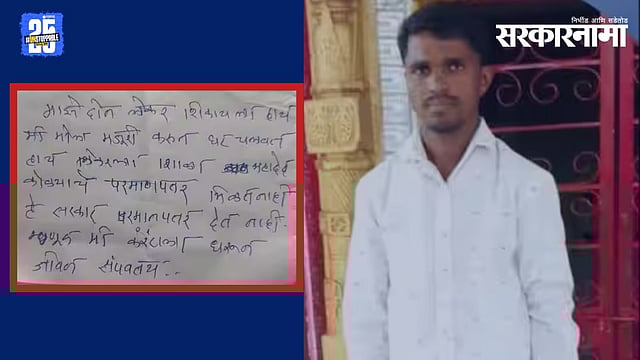 25
#UNSTOPPABLE
निर्भीड आणि सडेतोड
सरकारनामा
माझे दोन लेकर शिकायला हाय
मी मोल मजुरी करुन घर चलवत
हाय लेकरला शाळा महादेव
कोळ्याचे परमाणपतर मिळत नाही
हे सरकार परमानपतर देत नाही.
म्हणून मी करंटला धरून
जीवन संपवतय..